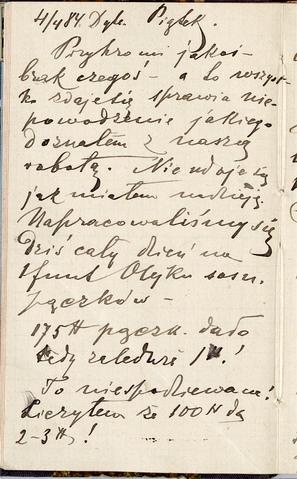 4/4 84. Dyle. Piątek.
Przykro mi jakoś
brak czegoś – a to wszyst-
ko zdaje się sprawia nie-
powodzenie jakiego
doznałem z naszą
robotą. Nie udaje się
jak miałem nadzieję.
Napracowaliśmy się
dziś cały dzień na
1 funt Olejku sosn.
pączków –
175 ℔ pączk. dało
tedy zaledwie 1 ℔!
To niespodziewane!
Liczyłem że 100 ℔ da
2–3 ℔!